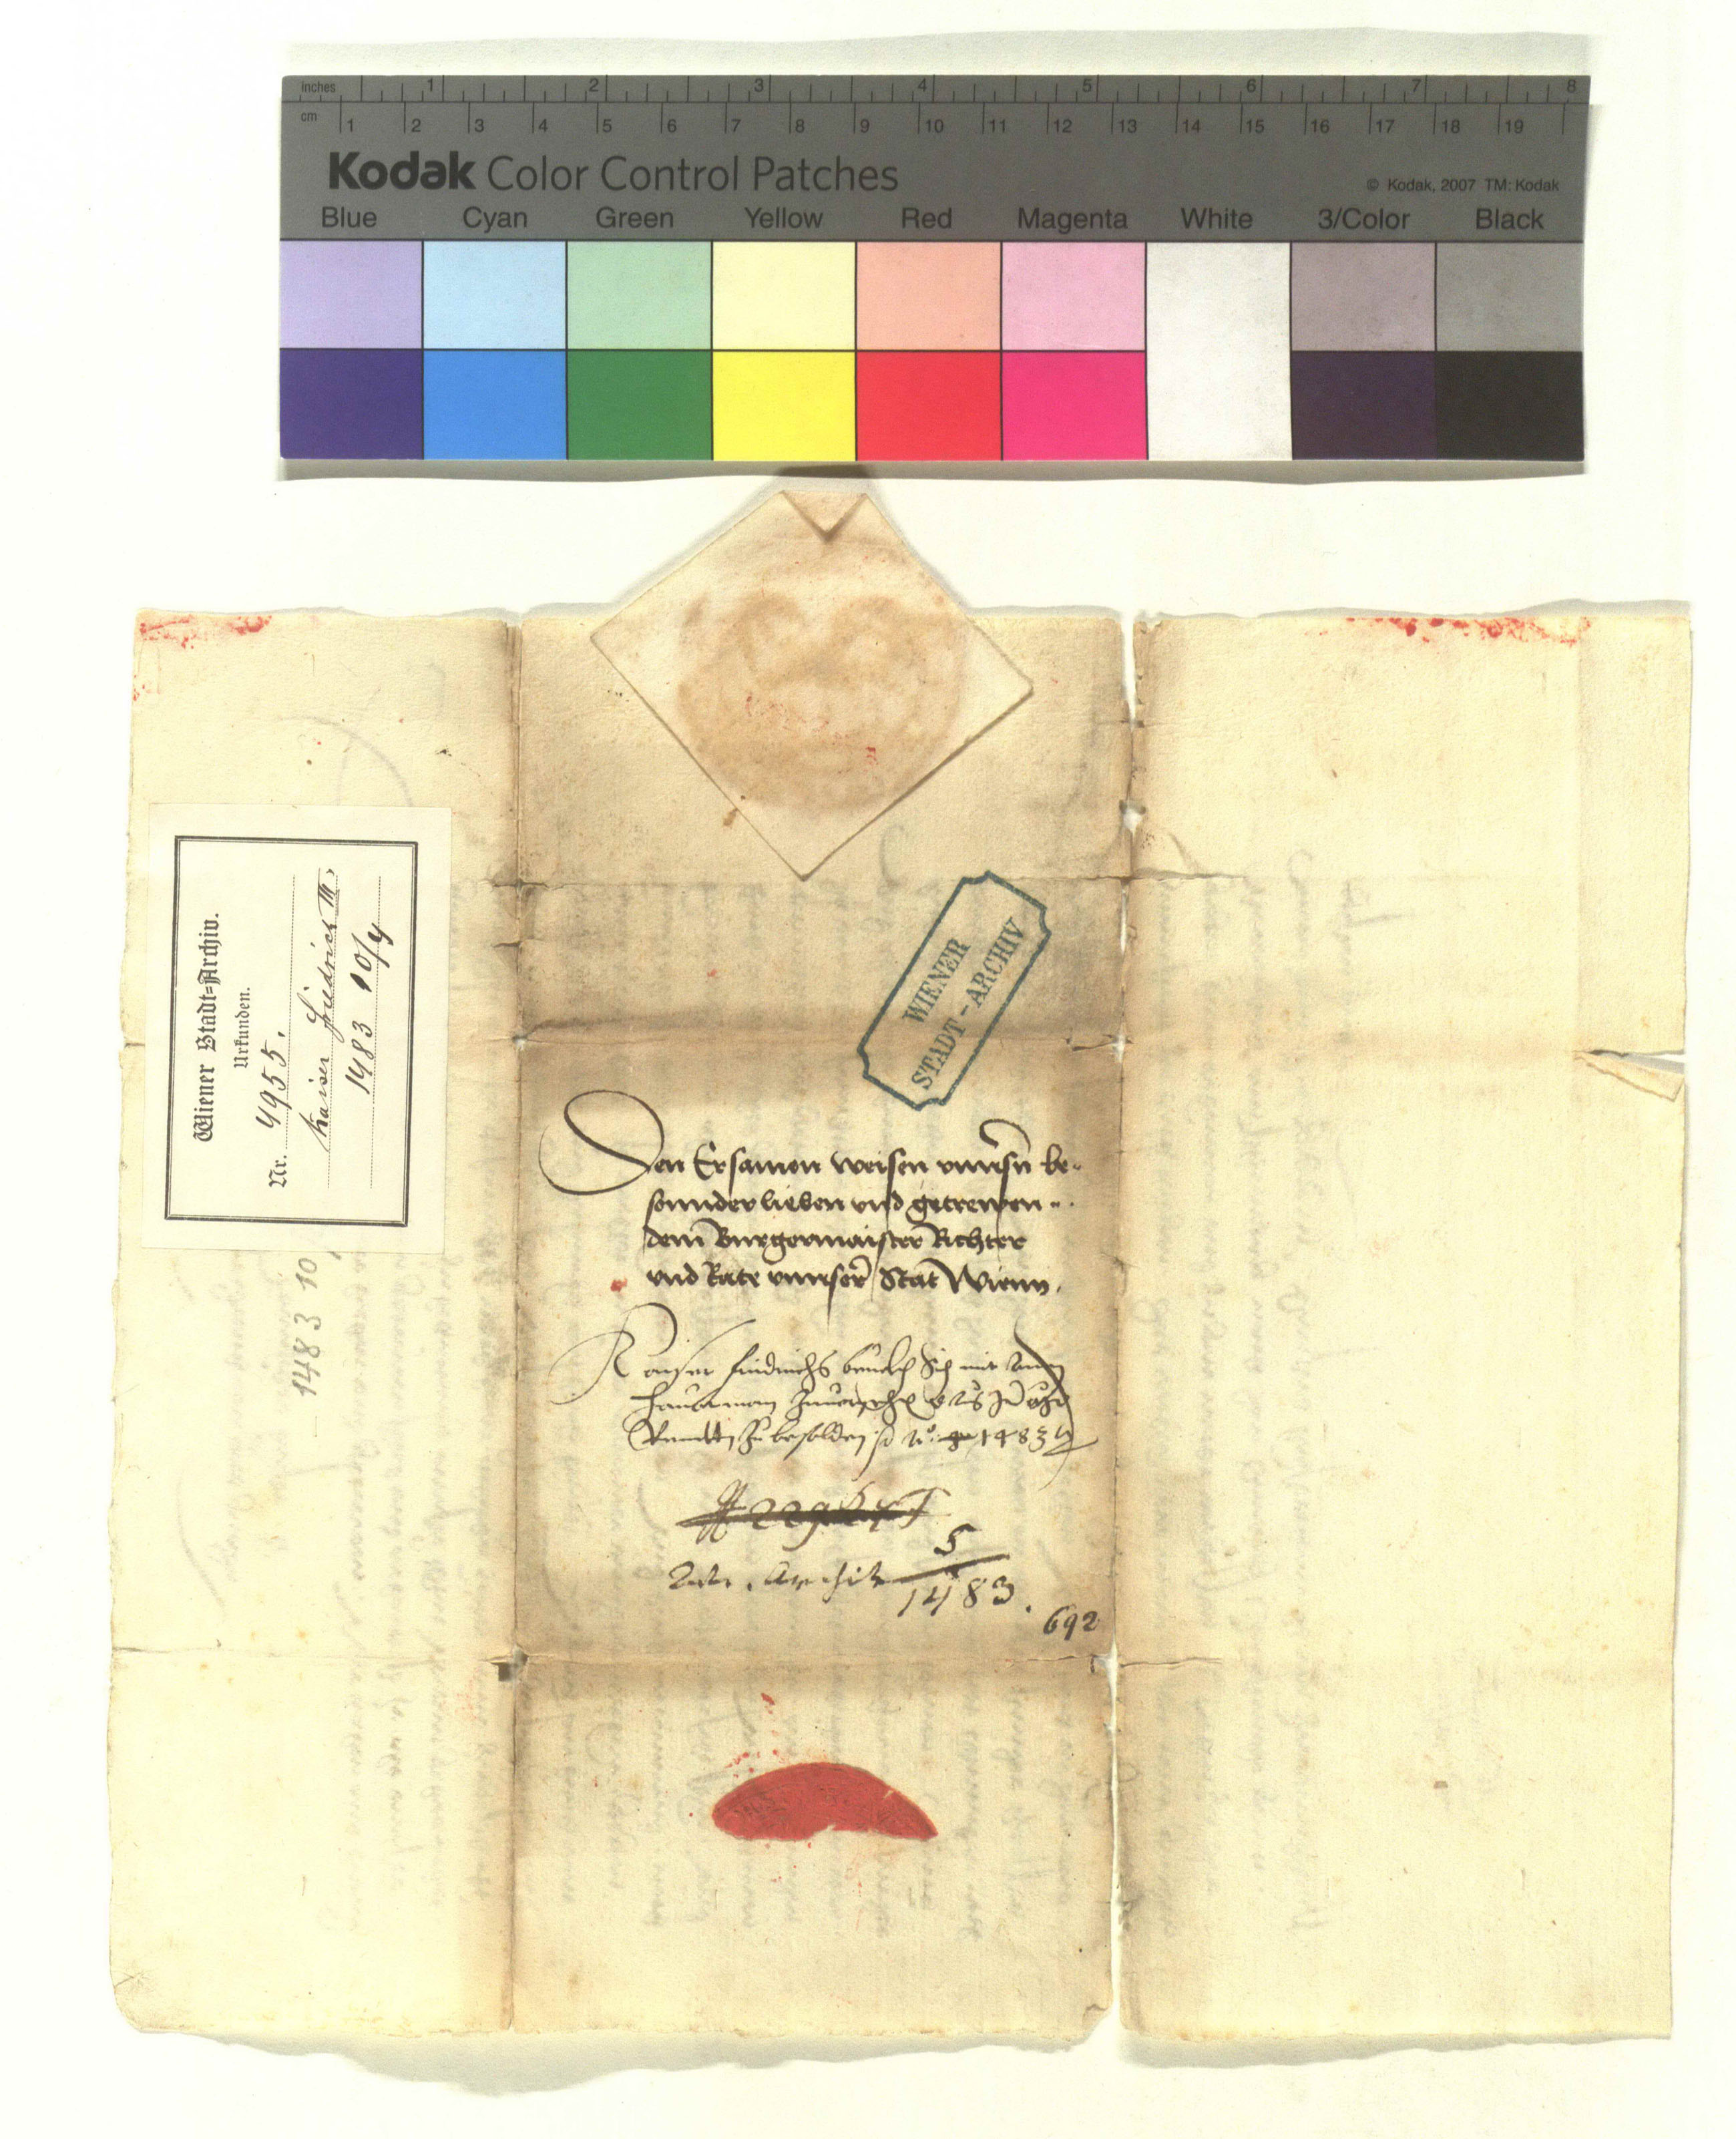 inches 1 2 3 4 5 6 7 8
cm 1 2 3 4 5 6 7 8 9 10 11 12 13 14 15 16 17 18 19
Kodak Color Control Patches
© Kodak, 2007 TM: Kodak
Blue Cyan Green Yellow Red Magenta White 3/Color Black
Wiener Stadt=Archiv.
Urkunden.
Nr. 4955.
Kaiser Friedrich III.
1483 10/4
1483 10
WIENER
STADT-ARCHIV
Den Ersamen weisen unnsn be-
sonnder lieben und getrewen
dem Burgermaister Richter
und Rate unnser Stat Wienn.
Kayser Fridrichs
zubesolden 1483
5
1483.
692